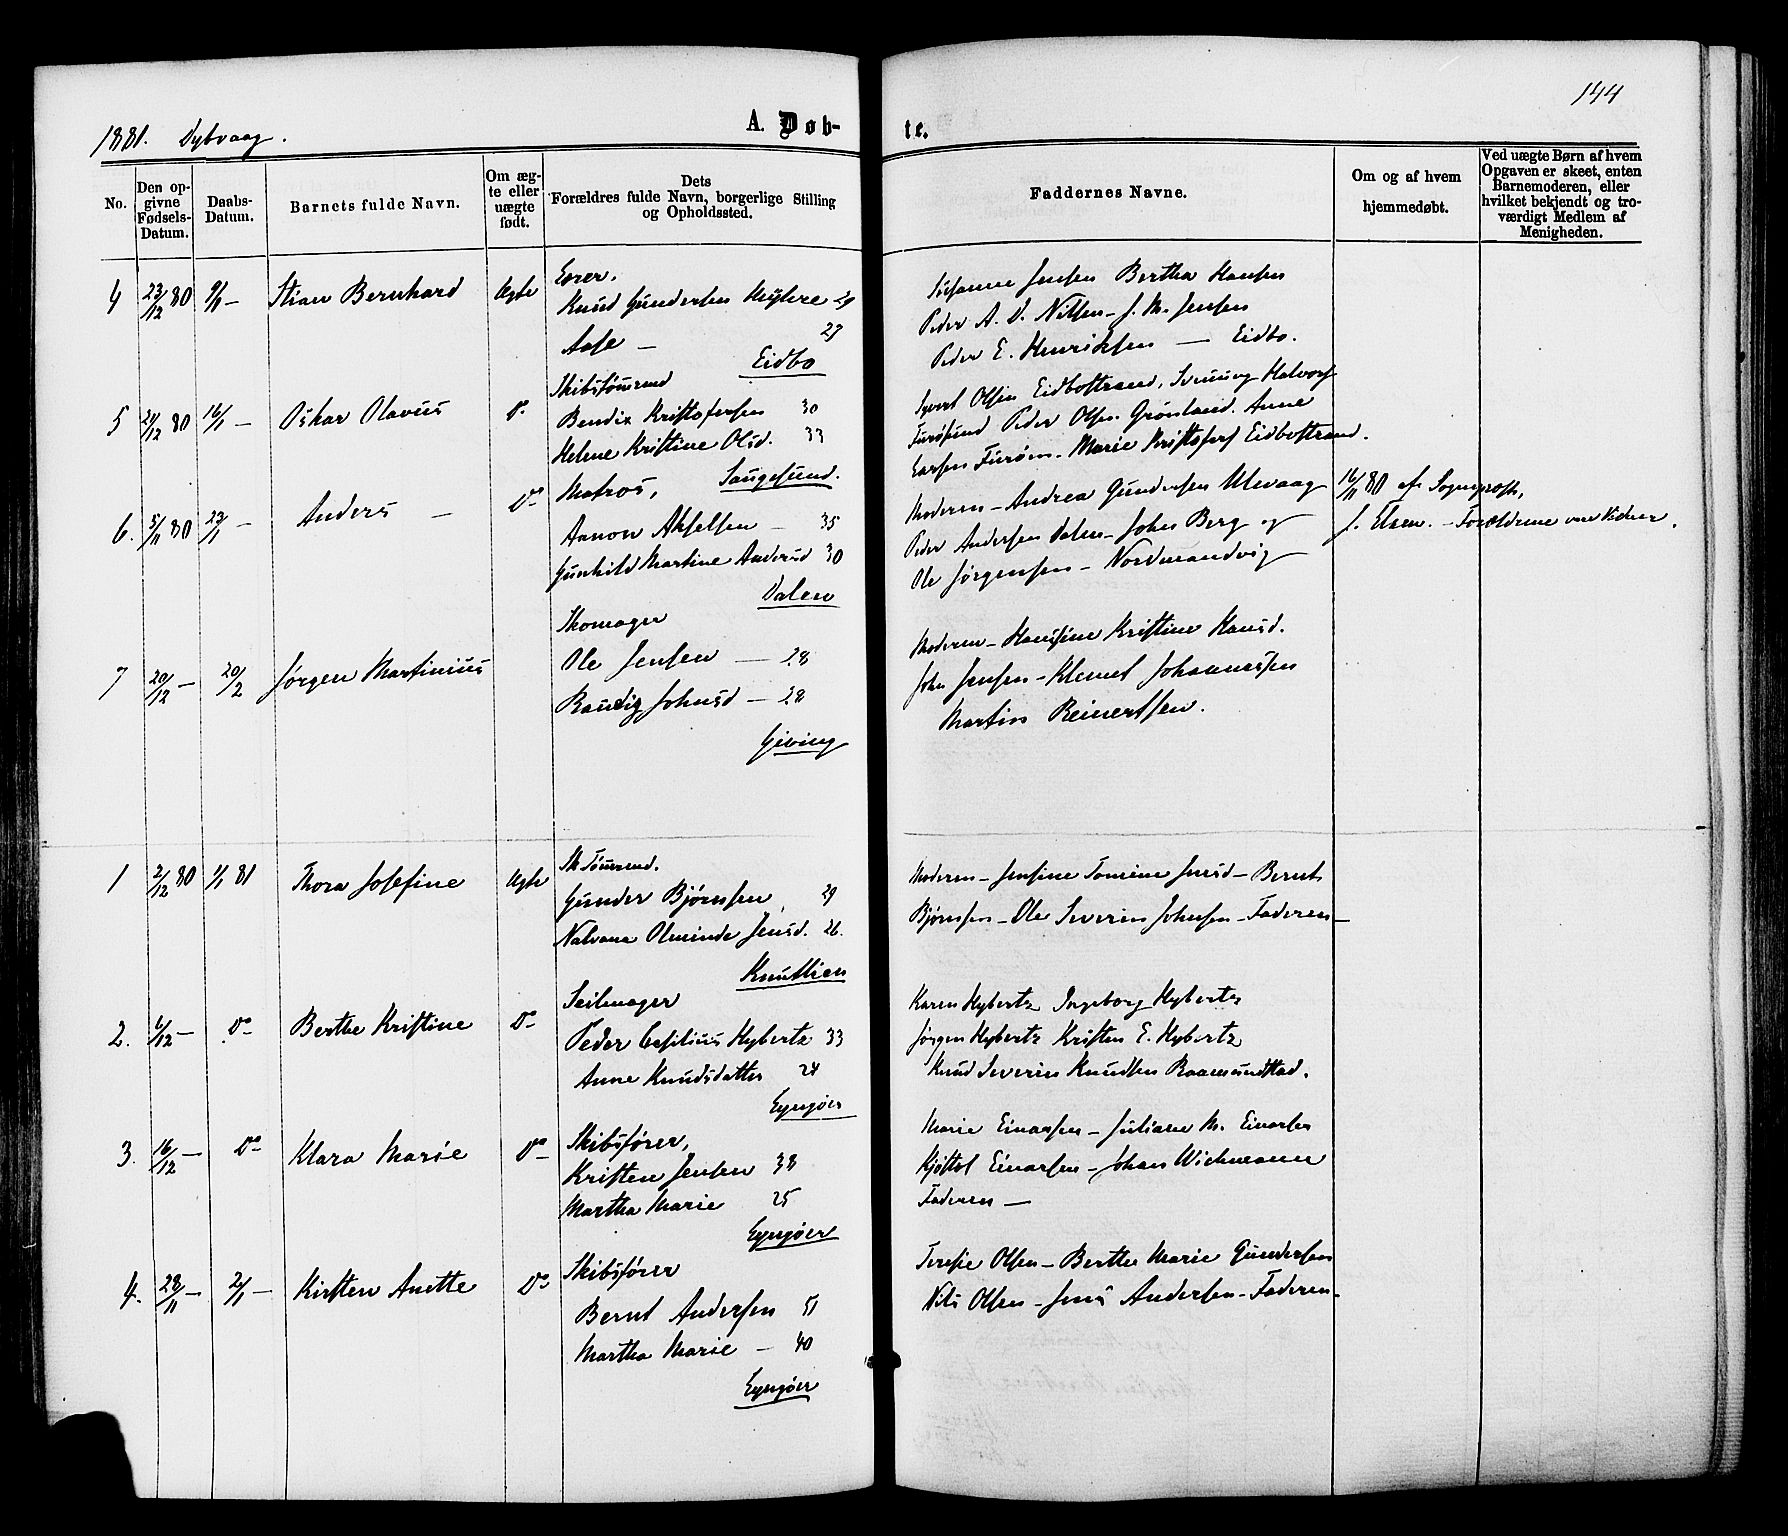 144
1881. Dybvaag.
A. Døb-
te.
No.
Den op-
givne
Fødsels-
Datum.
Daabs-
Datum.
Barnets fulde Navn.
Om æg-
te eller
uægte
født.
Dets
Forældres fulde Navn, borgerlige Stilling
og Opholdssted.
Faddernes Navne.
Om og af hvem
hjemmedøbt.
Ved uægte Børn af hvem
Opgaven er skeet, enten
Barnemoderen, eller
hvilket bekjendt og tro-
værdigt Medlem af
Menigheden.
4 23/12 80 9/1 — Stian Bernhard Ægte
Knud Gundersen 29
Aase — 29
Eidbo
Susanne Jensen Bertha Hansen
Peder A. D. Nilsen – J. M. Jensen
Peder E. Henriksen — Eidbo.
5 21/12 80 16/1 — Oskar Olavus Do
Skibstømmrmd
Bendix Kristofersen 30
Helene Kristine Olsd. 33
Saugesund.
Syvert Olsen Eidbostrand, Svenung Halvors
Furøsund Peder Olsen Grønland. Anne
Larsen Furøen. Marie Kristofers Eidbostrand.
6. 5/11 80 23/1 — Anders — Do
Matros,
Aanon Akselsen — 35
Gunhild Martine Andersd 30
Dalen
Moderen – Andrea Gundersen Ulevaag
Peder Andersen Dalen – John Berg og
Ole Jørgensen – Nordmandvig
16/11 80 af Sognepræst,
J. Elsen. – Forældrene var Vidner.
7 20/12 — 20/2 Jørgen Martinius
Skomager
Ole Jensen — 28
Randig Johnsd — 28
Giving
Moderen – Hansine Kristine Hansd.
John Jensen – Klemet Johannessen
Martin Reinertsen.
1 2/12 80 1/1 81 Thora Josefine Ægte
Sk Tømmrmd.
Gunder Bjørnsen, 29
Nalvana Olminde Jensd. 26.
Knutlien
Moderen – Jensine Tomine Jensd – Bernt
Bjørnsen – Ole Severin Johnsen – Faderen —
2. 6/12 — Do Berthe Kristine Do
Seilmager
Peder Hybertz 33
Anne Knudsdatter 24
Lyngøer
Karen Hybertz Ingeborg Hybertz
Jørgen Hybertz Kristen E. Hybertz
Knud Severin Knudsen Raamundstad.
3. 16/12 — Do Klara Marie Do
Skibsfører,
Kristen Jensen 38
Martha Marie 25
Lyngøer
Marie Einarsen – Juliane M. Einarsen
Kjøstol Einarsen – Johan Wichmann
Faderen —
4. 28/11 — 2/1 — Kirsten Anette Do
Skibsfører
Bernt Andersen 51
Martha Marie — 40
Lyngøer
Teresie Olsen – Berthe Marie Gundersen
Nils Olsen – Jens Andersen – Faderen –